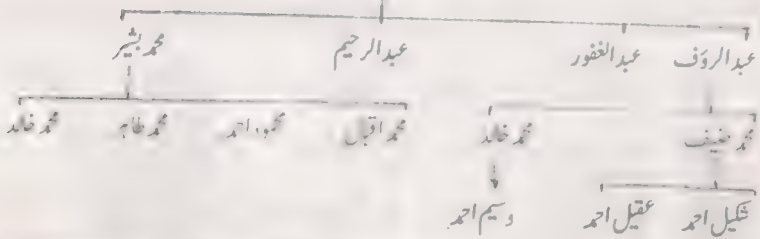 عبدالروف عبدالغفور عبدالرحیم محمد بشیر
محمد حنیف محمد خالد محمد اقبال محمود احمد محمد طاہر محمد خالد
شکیل احمد عقیل احمد وسیم احمد